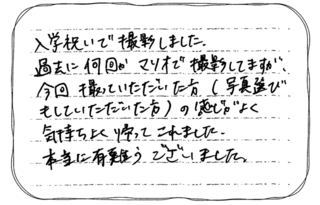 入学祝いで撮影しました.
過去に何回か マリオで撮影してますが、
今回 撮っていただいた方 (写真選び
もしていただいた方) の感じがよく
気持ちよく帰ってこれました.
本当に有難うございました。